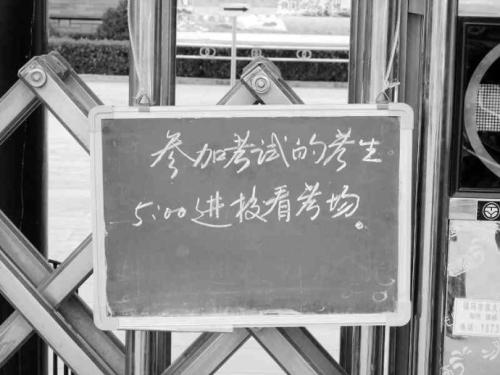 参加考试的考生
5:00进校看考场。